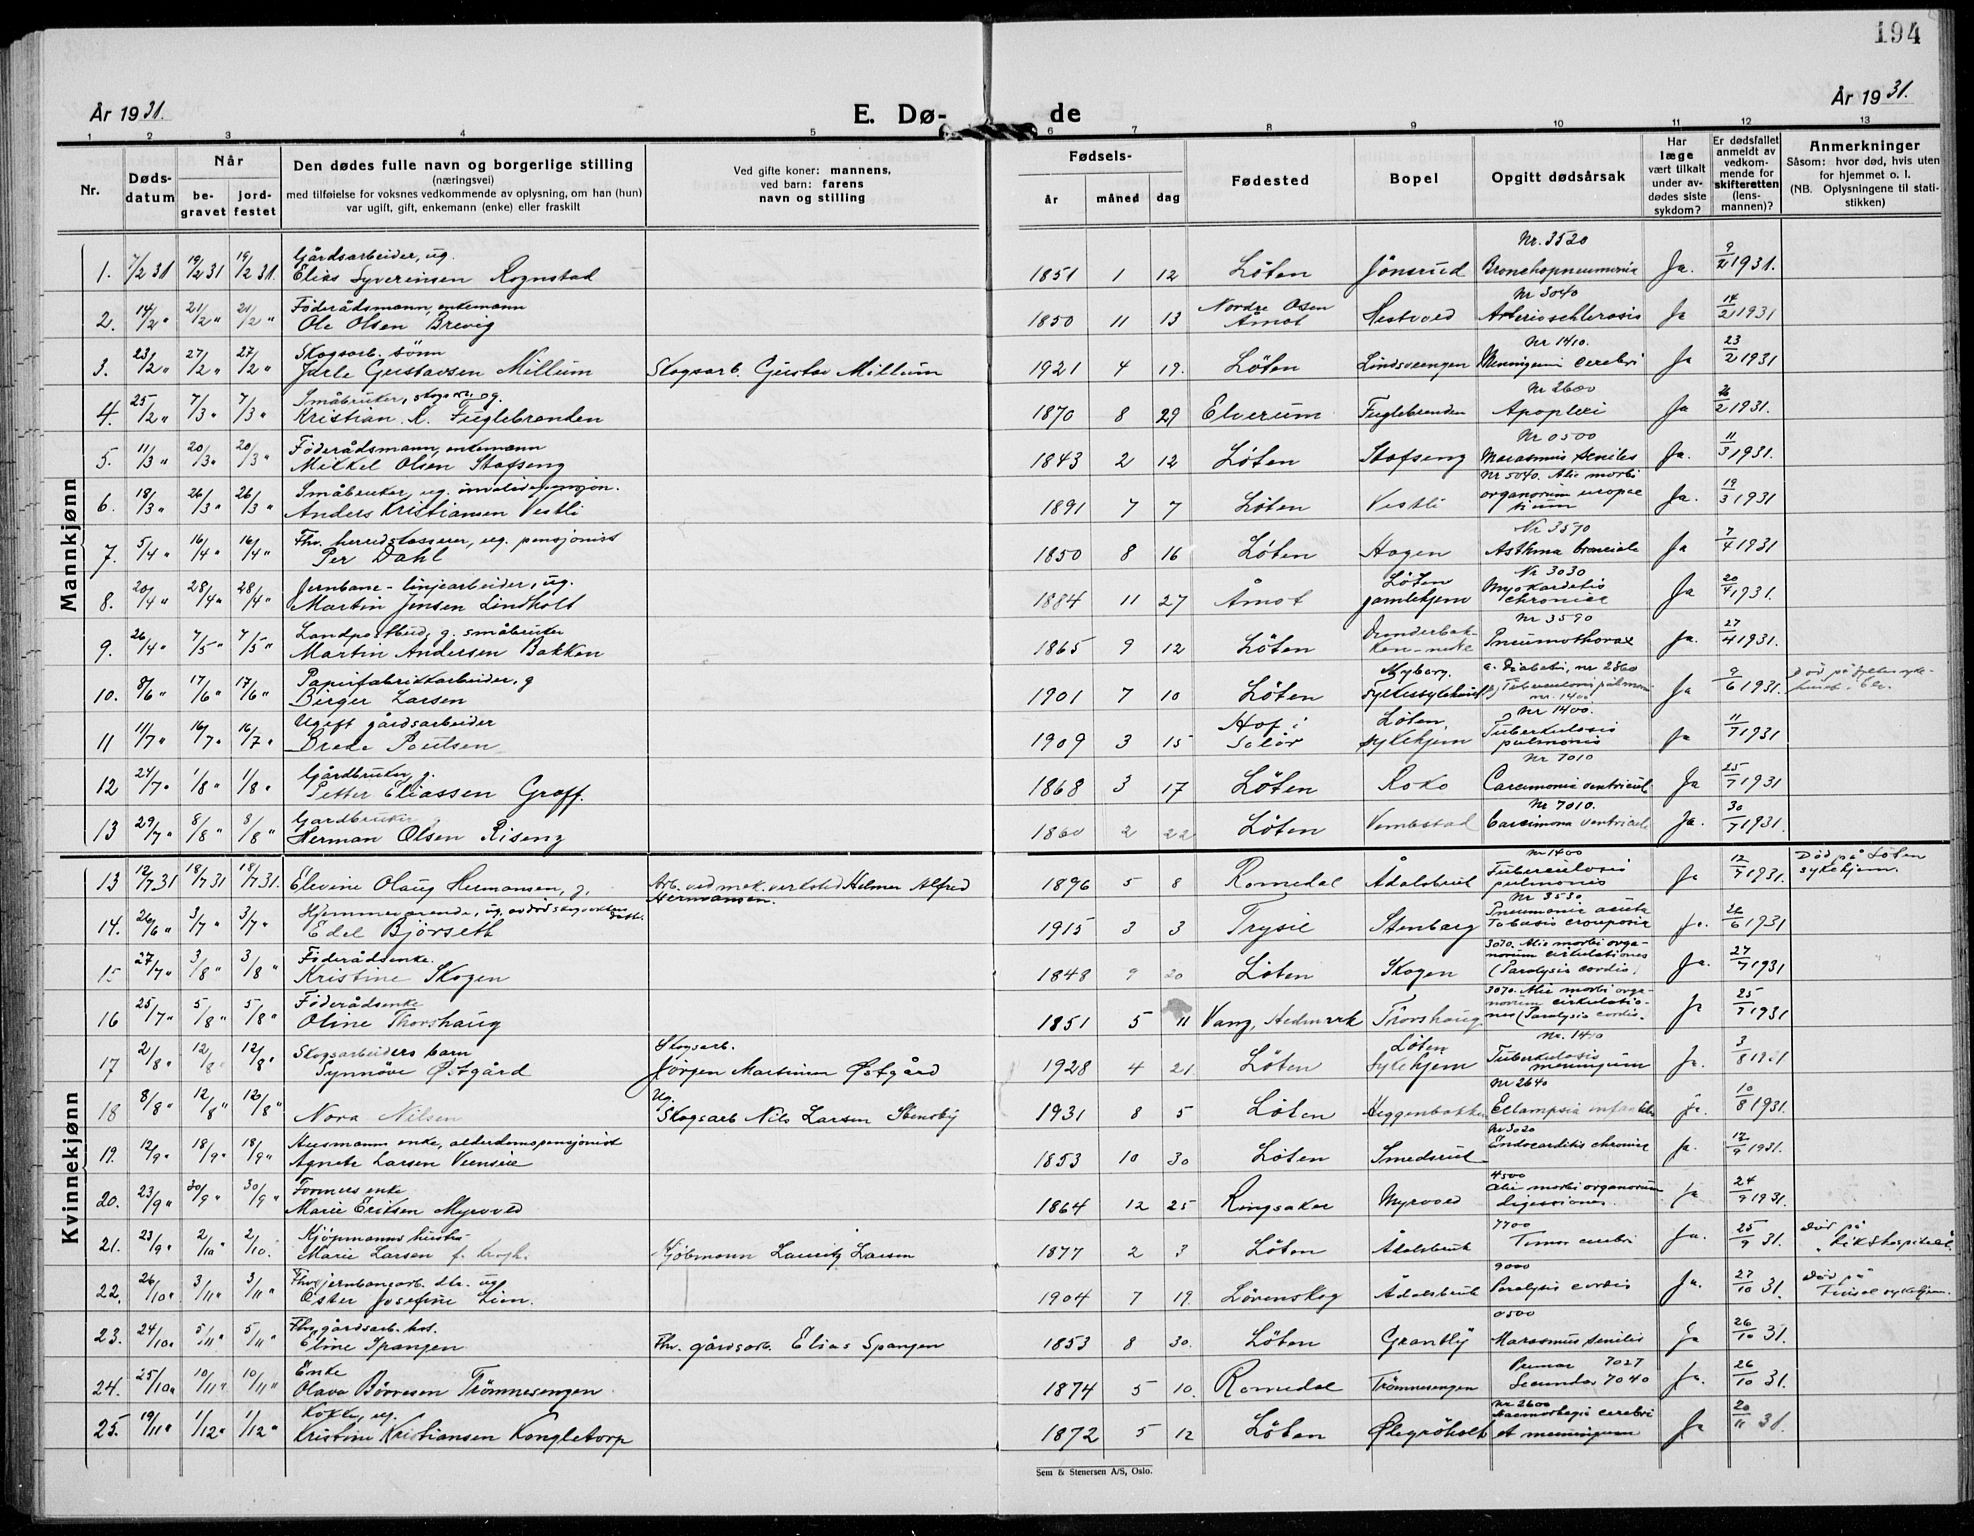 194
År 1931.
E. Dø-
de
År 1931.
1 2 3 4 5 6 7 8 9 10 11 12 13
Nr.
Døds-
datum
Når
be-
gravet
jord-
festet
Den dødes fulle navn og borgerlige stilling
(næringsvei)
med tilføielse for voksnes vedkommende av oplysning, om han (hun)
var ugift, gift, enkemann (enke) eller fraskilt
Ved gifte koner: mannens,
ved barn: farens
navn og stilling
Fødsels-
år måned dag
Fødested
Bopel
Opgitt dødsårsak
Har
læge
vært tilkalt
under av-
dødes siste
sykdom?
Er dødsfallet
anmeldt av
vedkom-
mende for
skifteretten
(lens-
mannen)?
Anmerkninger
Såsom: hvor død, hvis uten
for hjemmet o. l.
(NB. Oplysningene til stati-
stikken)
Mannkjønn
Gårdsarbeider, ug. Nr. 3520
1. 7/2 31 19/2 31 19/2 31. Elias Syverinsen Rognstad 1851 1 12 Löten Jönsrud Bronchopneumonia Ja. 9/2 1931.
Föderådsmann, enkemann Nordre Osen Nr 3040
2. 14/2 " 21/2 " 21/2 " Ole Olsen Brevig 1850 11 13 Åmot Hestvold Arterioschlerosis Ja 14/2 1931
Skogsarb. sønn Nr 1410.
3. 23/2 " 27/2 " 27/2 " Jarle Gustavsen Millum Skogsarb. Gustav Millum 1921 4 19. Löten Lindsvengen cerebri Ja 23/2 1931
Småbruker, Nr 2600
4. 25/2 " 7/3 " 7/3 " Kristian K. Fuglebrenden 1870 8 29 Elverum Fuglebrenden Apoplexi Ja 26/2 1931.
Föderådsmann, enkemann Nr 0500
5. 11/3 " 20/3 " 20/3 " Mikkel Olsen Stofseng 1843 2 12 Löten Stofseng Marasmus seniles Ja. 11/3 1931.
Småbruker, ug. Nr 5040. Alie morbi
6. 18/3 " 26/3 " 26/3 " Anders Kristiansen Vestli 1891 7 7 Löten Vestli organorum Ja. 19/3 1931
Fhv. herredskasserer, ug. pensjonist Nr 3570
7. 5/4 " 16/4 " 16/4 " Per Dahl 1850 8 16 Löten Hagen Asthma bronciale Ja 7/4 1931
Jernbane-linjearbeider, ug. Löten Nr 3030
8. 20/4 " 28/4 " 28/4 " Martin Jensen Lindholt 1884 11 27 Åmot gamlehjem Myokarditis chronica Ja 20/4 1931.
Landpostbud, g. småbruker Nr 3590
9. 26/4 " 7/5 " 7/5 " Martin Andersen Bakken 1865 9 12 Löten Pneumothorax Ja. 27/4 1931.
Papirfabrikkarbeider, g Myborg.
10. 8/6 " 17/6 " 17/6 " Birger Larsen 1901 7 10 Löten Fylkessykehus Tuberculosis pulmon. nr. 1400 Ja 9/6 1931.
Ugift gårdsarbeider Hof i Löten, Nr 1400.
11 11/7 " 16/7 " 16/7 " Brede Poulsen 1909 3 15 Solör sykehjem Tuberkulosis pulmonis Ja 11/7 1931
Gårdbruker, g. Nr 7010
12 24/7 " 1/8 " 1/8 " Petter Eliassen Groff. 1868 3 17 Löten Roko Carcinoma ventriculi Ja 25/7 1931
Gardbruker g Nr 7010.
13 29/7 " 8/8 " 8/8 " Herman Olsen Riseng 1860 2 22 Löten Vembstad Carcinoma ventriculi Ja. 30/7 1931.
Kvinnekjønn
Nr 1400 Död på Löten
13 12/7 31 18/7 31 18/7 31. Elevine Olaug Hermansen, g. Arb. ved mek. verksted Helmer Alfred Hermansen. 1896 5 8 Romedal Ådalsbruk Tuberculosis pulmonis Ja 12/7 1931. sykehjem.
Hjemmeværende, ug. Nr 3530
14. 26/6 " 3/7 " 3/7 " Edel Björseth 1915 3 3 Trysil Stenberg Pneumonia acuta Ja. 26/6 1931
Föderådsenke. 3070. Alie morbi orga-
15 27/7 " 3/8 " 3/8 " Kristine Skogen 1848 9 20 Löten Skogen norum cirkulationes (Paralysis cordis) Ja. 27/7 1931
Föderådsenke 3070. Alie morbi orga-
16 25/7 " 5/8 " 5/8 " Oline Thorshaug 1851 5 11 Vang, Hedmark Thorshaug norum cirkulatio- nes (Paralysis cordis. Ja 25/7 1931
Skogsarbeiders barn Skogsarb. Löten
17 2/8 " 12/8 " 12/8 " Synnöve Østgård Jörgen Martinsen Østgård 1928 4 21 Löten Sykehjem Tuberkulosis meningum Ja. 3/8 1931
Ug. Nr 2640
18 8/8 " 12/8 " 12/8 " Nora Nilsen Skogsarb Nils Larsen Stensby 1931 8 5 Löten Heggenbakken Eclampsia Ja. 10/8 1931.
Husmanns enke, alderdomspensjonist Nr 3020
19. 12/9 " 18/9 " 18/9 " Agnete Larsen 1853 10 30 Löten Smedsrud Endocarditis chronica Ja. 12/9 1931.
enke 4500
20. 23/9 " 30/9 " 30/9 " Marie Eriksen Myrvold 1864 12 25 Ringsaker Myrvold Alie morbi organorum digessiones. Ja 24/9 1931.
Kjöpmanns hustru 7700 död på
21. 23/9 " 2/10 " 2/10. Marie Larsen f. Krogh. Kjöbmann Lauritz Larsen 1877 2 3 Löten Ådalsbruk Tumor cerebri Ja. 25/9 31. Rikshospitalet
Fhv jernbanearb. dtr. ug 9000 Död på
22. 26/10 " 3/11 " 3/11 " Ester Josefine Lien. 1904 7 19. Lörenskog Ådalsbruk Paralysis cordis Ja. 27/10 31.
Fhv gårdsarb. 0500
23. 24/10 " 5/11 " 5/11 " Eline Spangen Fhv. gårdsarb. Elias Spangen 1853 8 30. Löten Granbly Marasmus senilis Ja 26/10 31.
Enke Primar 7027
24. 25/10 " 10/11 " 10/11 " Olava Börresen Trömnesengen 1874 5 10. Romedal Trömnesengen Secundar 7040 Ja. 26/10 31.
Kokke, ug. Nr 2600
25. 19/11 " 1/12 " 1/12 " Kristine Kristiansen Kongletorp 1872 5 12 Löten Haemorhagi cerebri et meningum Ja 20/11 31.
Sem & Stenersen A/S, Oslo.